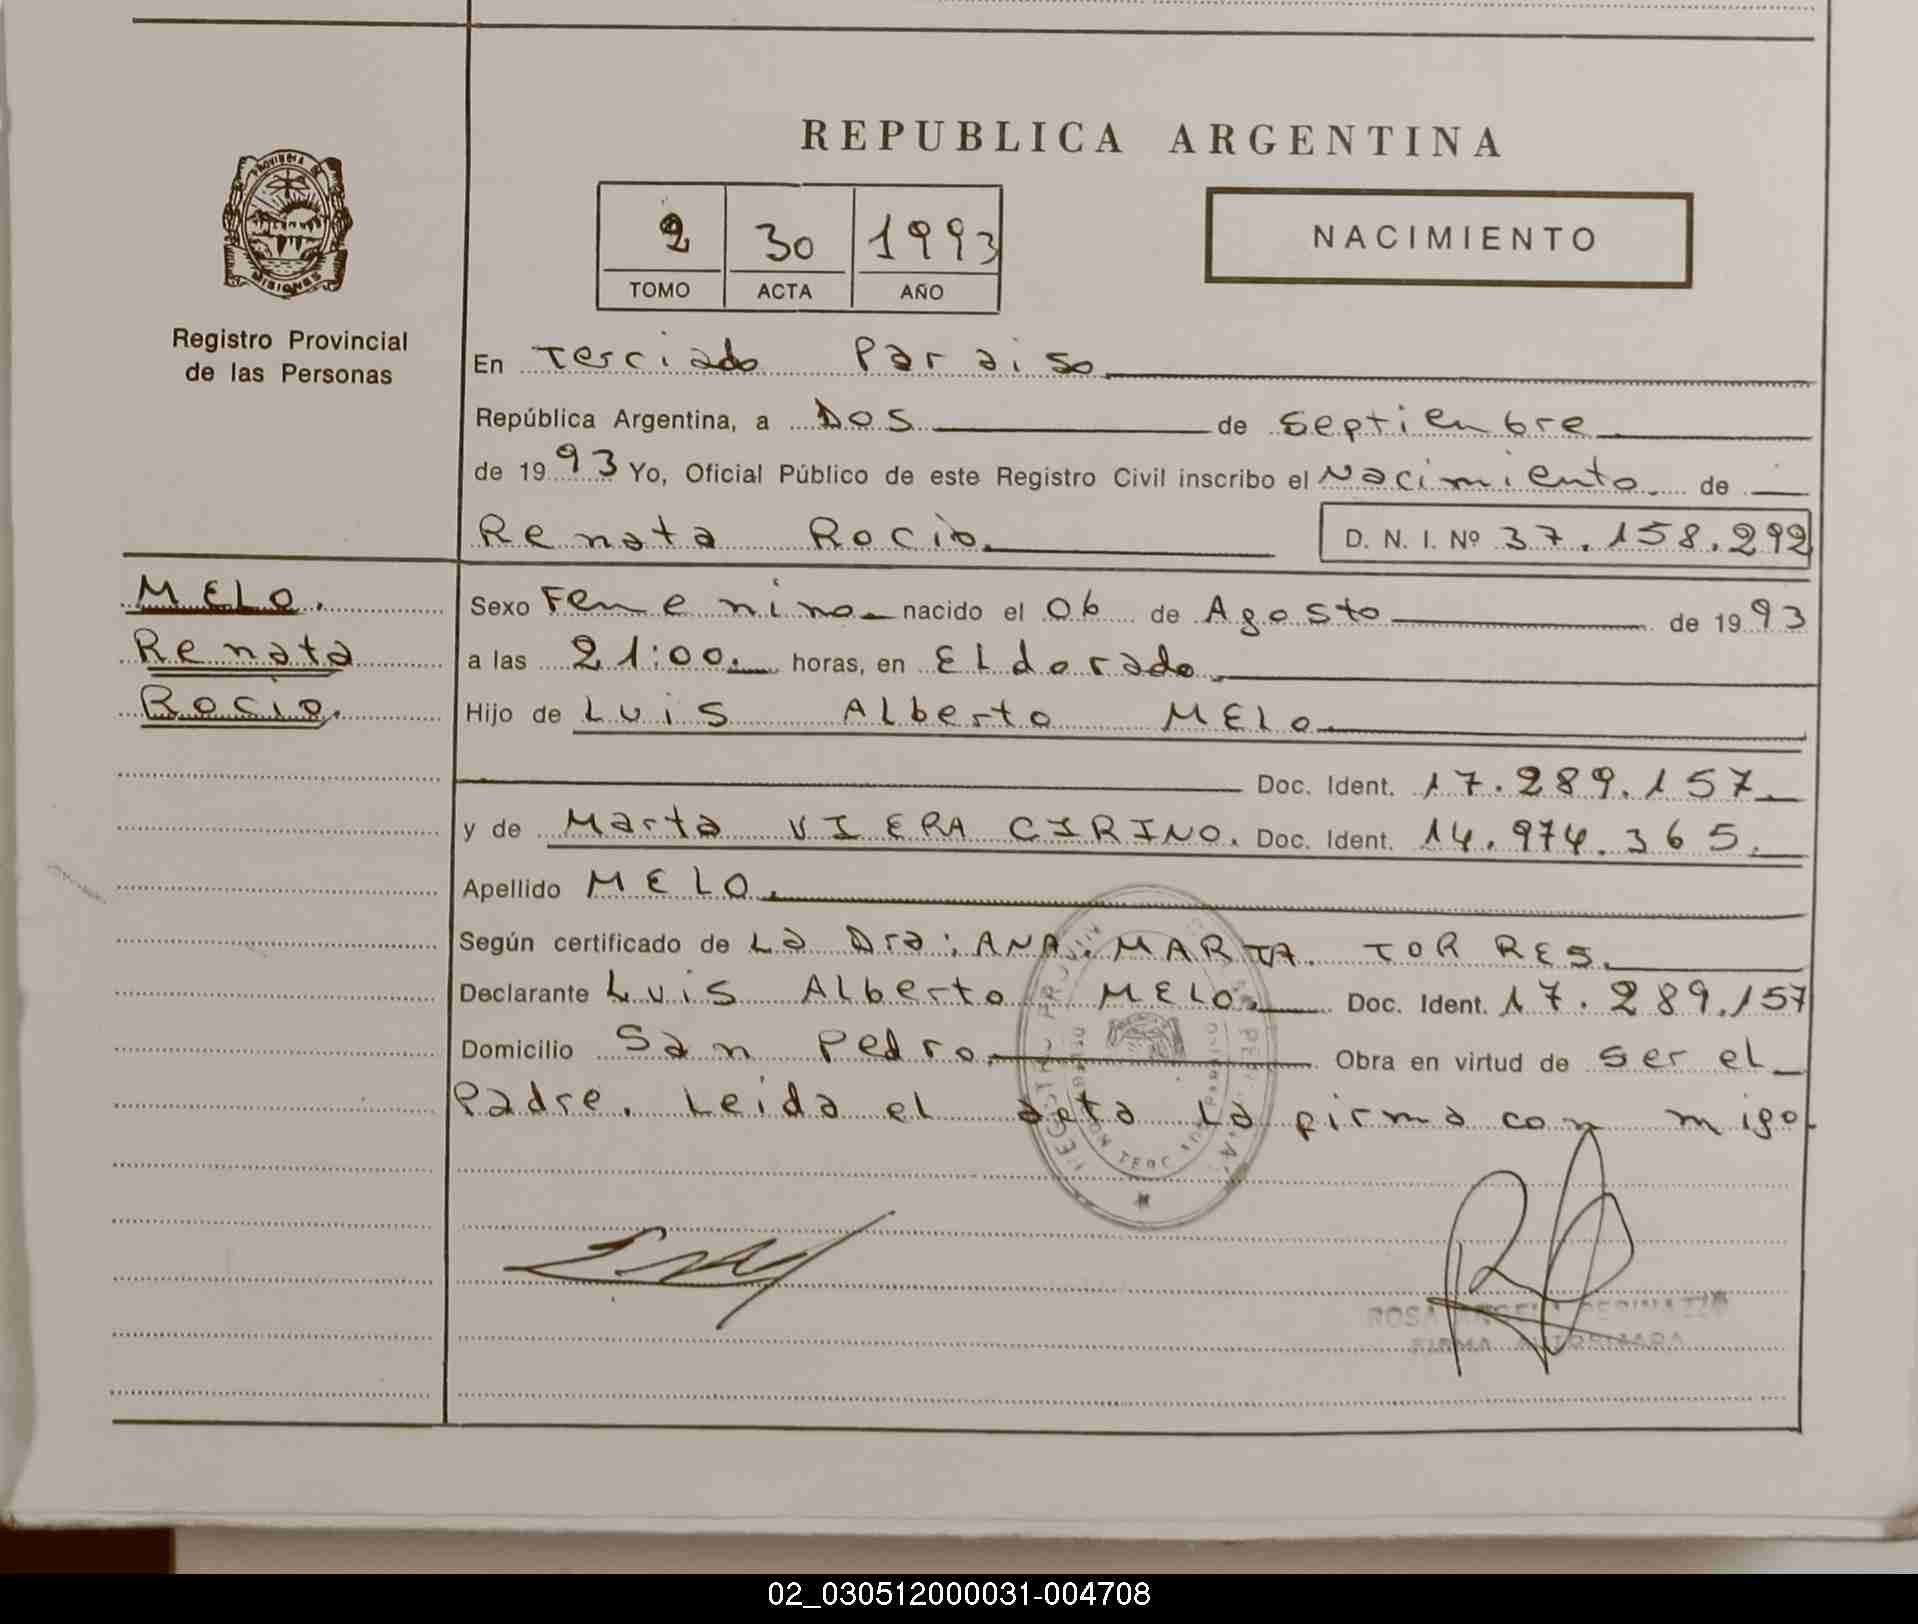 REPUBLICA ARGENTINA
PROVINCIA DE
MISIONES
Registro Provincial
de las Personas
2 30 1993
TOMO ACTA AÑO
NACIMIENTO
En Terciado Paraiso
República Argentina, a Dos de Septienbre
de 1993 Yo, Oficial Público de este Registro Civil inscribo el Nacimiento de
Renata Rocio. D. N. I. Nº 37.158.292
MELO.
Renata
Rocio.
Sexo Femenino nacido el 06 de Agosto de 1993
a las 21:00. horas, en ELdorado.
Hijo de Luis Alberto MELO
Doc. Ident. 17.289.157.
y de Marta VIERA CIRINO. Doc. Ident. 14.974.365.
Apellido MELO.
Según certificado de La Dra: ANA MARTA TORRES.
Declarante Luis Alberto MELO. Doc. Ident. 17.289.157
Domicilio San Pedro Obra en virtud de ser el
Padre. Leida el acta La firma con migo.
ROSA
FIRMA AUTORIZADA
02_030512000031-004708